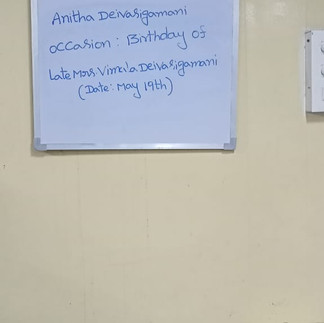 Anitha Deivasigamani
occasion : Birthday of
Late Mrs. Vimala Deivasigamani
(Date: May 19th)